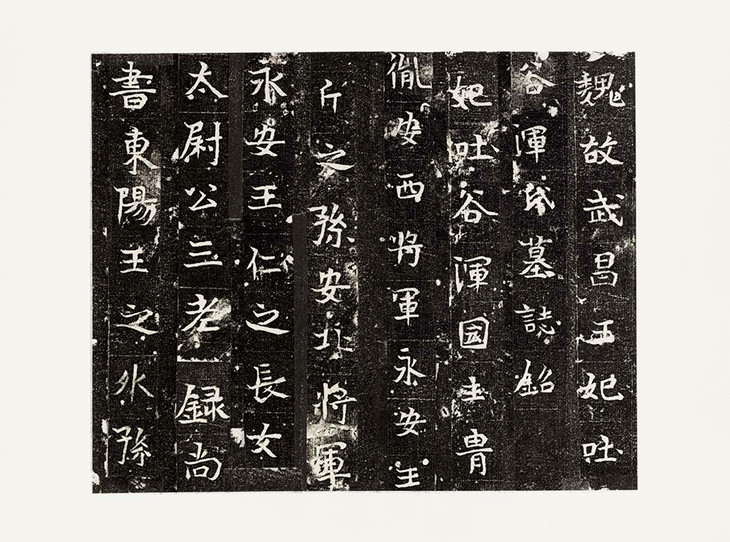 魏故武昌王妃吐
谷渾氏墓誌銘
妃吐谷渾国主胄
胤安西将軍永安王
斤之孫安北将軍
永安王仁之長女
太尉公三老録尚
書東陽王之外孫